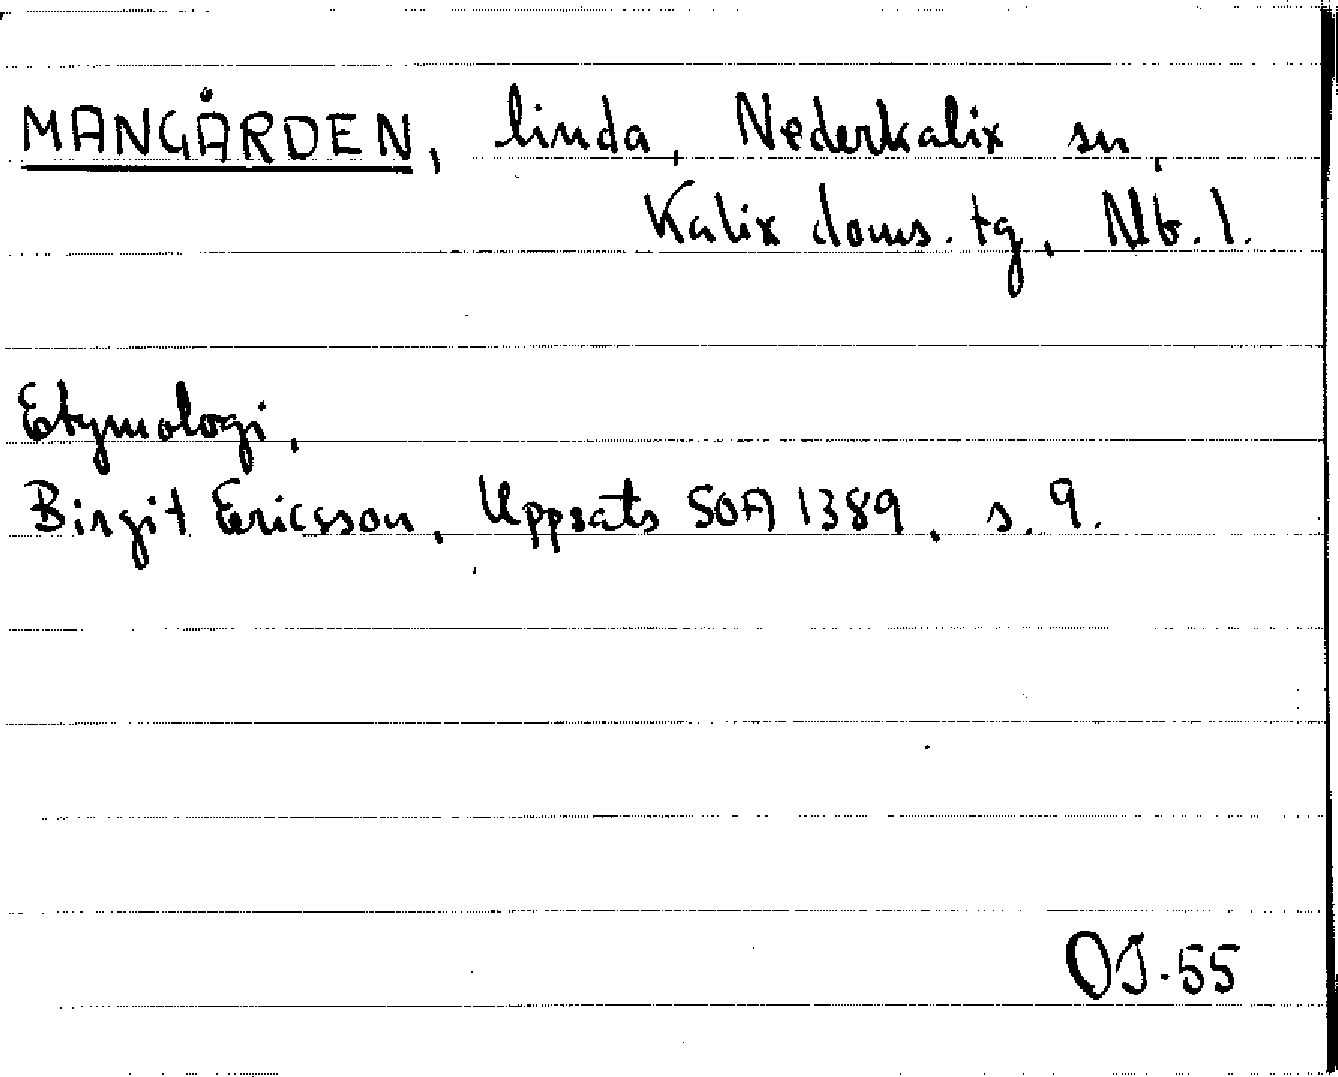 MANGÅRDEN, linda, Nederkalix sn,
Kalix doms. tg, Nb. l.
Etymologi.
Birgit Ericsson, Uppsats SOA 1389, s. 9.
OJ-55